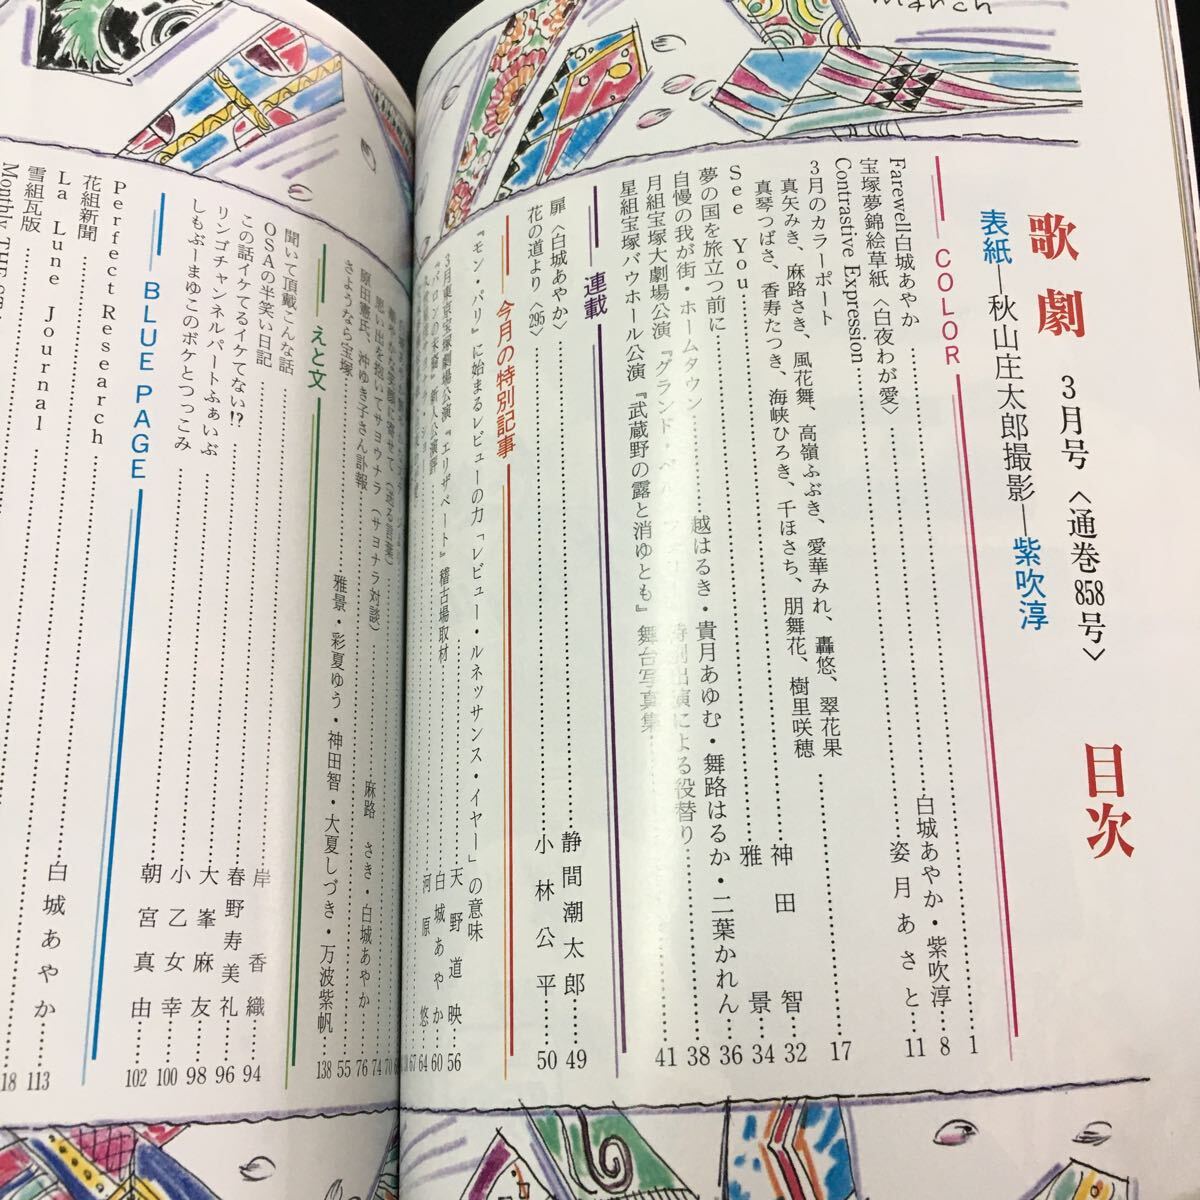 March
歌劇 3月号〈通巻858号〉 目次
表紙―秋山庄太郎撮影―紫吹淳
COLOR
Farewell・白城あやか……1
宝塚夢錦絵草紙〈白夜わが愛〉……白城あやか・紫吹淳 8
Contrastive Expression……姿月あさと 11
3月のカラーポート
真矢みき、麻路さき、風花舞、高嶺ふぶき、愛華みれ、轟悠、翠花果
真琴つばさ、香寿たつき、海峡ひろき、千ほさち、朋舞花、樹里咲穂……17
See You……神田智 32
雅景 34
夢の国を旅立つ前に……越はるき・貴月あゆむ・舞路はるか・二葉かれん 36
自慢の我が街・ホームタウン……38
月組宝塚大劇場公演『グランド・
特別出演による役替り
星組宝塚バウホール公演『武蔵野の露と消ゆとも』舞台写真集……41
連載
扉〈白城あやか〉……静間潮太郎 49
花の道より〈295〉……小林公平 50
今月の特別記事
『モン・パリ』に始まるレビューの力「レビュー・ルネッサンス・イヤー」の意味
……天野道映 56
3月東京宝塚劇場公演『エリザベート』稽古場取材……白城あやか 60
新人公演評……河原 悠 64
67
思い出を抱いてサヨウナラ(サヨナラ対談)……麻路さき・白城あやか 74
原田憲氏、沖ゆき子さん訃報……76
さようなら宝塚……55
雅景・彩夏ゆう・神田智・大夏しづき・万波紫帆……138
えと文
聞いて頂戴こんな話……岸香織 94
OSAの半笑い日記……春野寿美礼 96
この話イケてるイケてない!?……大峯麻友 98
リンゴチャンネルパートふぁいぶ……小乙女幸 100
しもぶーまゆこのボケとつっこみ……朝宮真由 102
BLUE PAGE
Perfect Research……白城あやか 113
花組新聞……18
La Lune Journal
雪組瓦版
Monthly THE